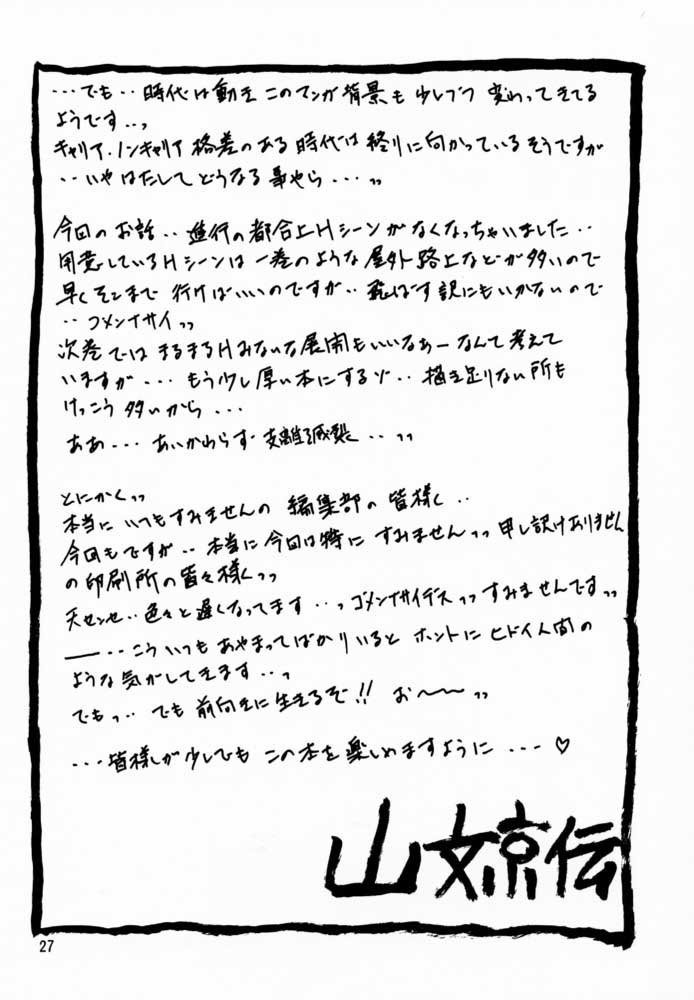 ・・・でも・・時代は動き このマンガ背景も少しづつ 変わってきてる
ようです・・っ
キャリア・ノンキャリア格差のある時代は終りに向かっているそうですが
・・いやはたしてどうなる事やら・・・っっ
今回のお話・・進行の都合上Hシーンがなくなっちゃいました・・
用意しているHシーンは一巻のような屋外路上などが多いので
早くそこまで行けばいいのですが・・飛ばす訳にもいかないので
・・ゴメンナサイっっ
次巻ではまるまるHみたいな展開もいいなぁーなんて考えて
いますが・・・もう少し厚い本にするゾ・・描き足りない所も
けっこう多いから・・・
ああ・・・あいかわらず支離滅裂・・っっ
とにかくっっ
本当にいつもすみませんの編集部の皆様く・・
今回もですが・・本当に今回は特にすみませんっっ申し訳けありません
の印刷所の皆々様くっっ
天センセ・・色々と遅くなってます・・っゴメンナサイデスっっすみませんですっっ
――・・こういつもあやまってばかりいると ホントにヒドイ人間の
ような気がしてきます・・っ
でもっ・・でも前向きに生きるぞ!! お〜〜っっ
・・・皆様しが少しでも この本を楽しめますように・・・♡
山文京伝
27